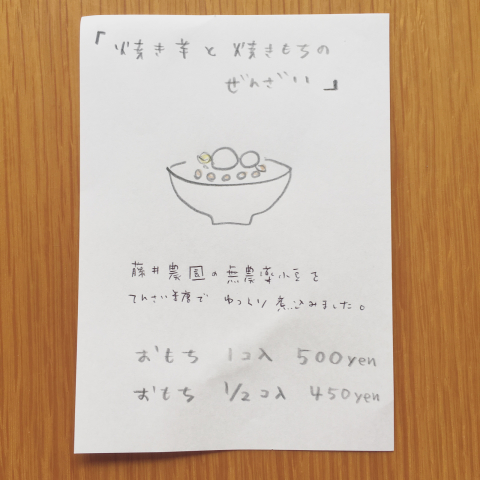 「焼き芋と焼きもちの
ぜんざい」
藤井農園の無農薬小豆を
てんさい糖で ゆっくり煮込みました。
おもち 1コ入 500yen
おもち 1/2コ入 450yen